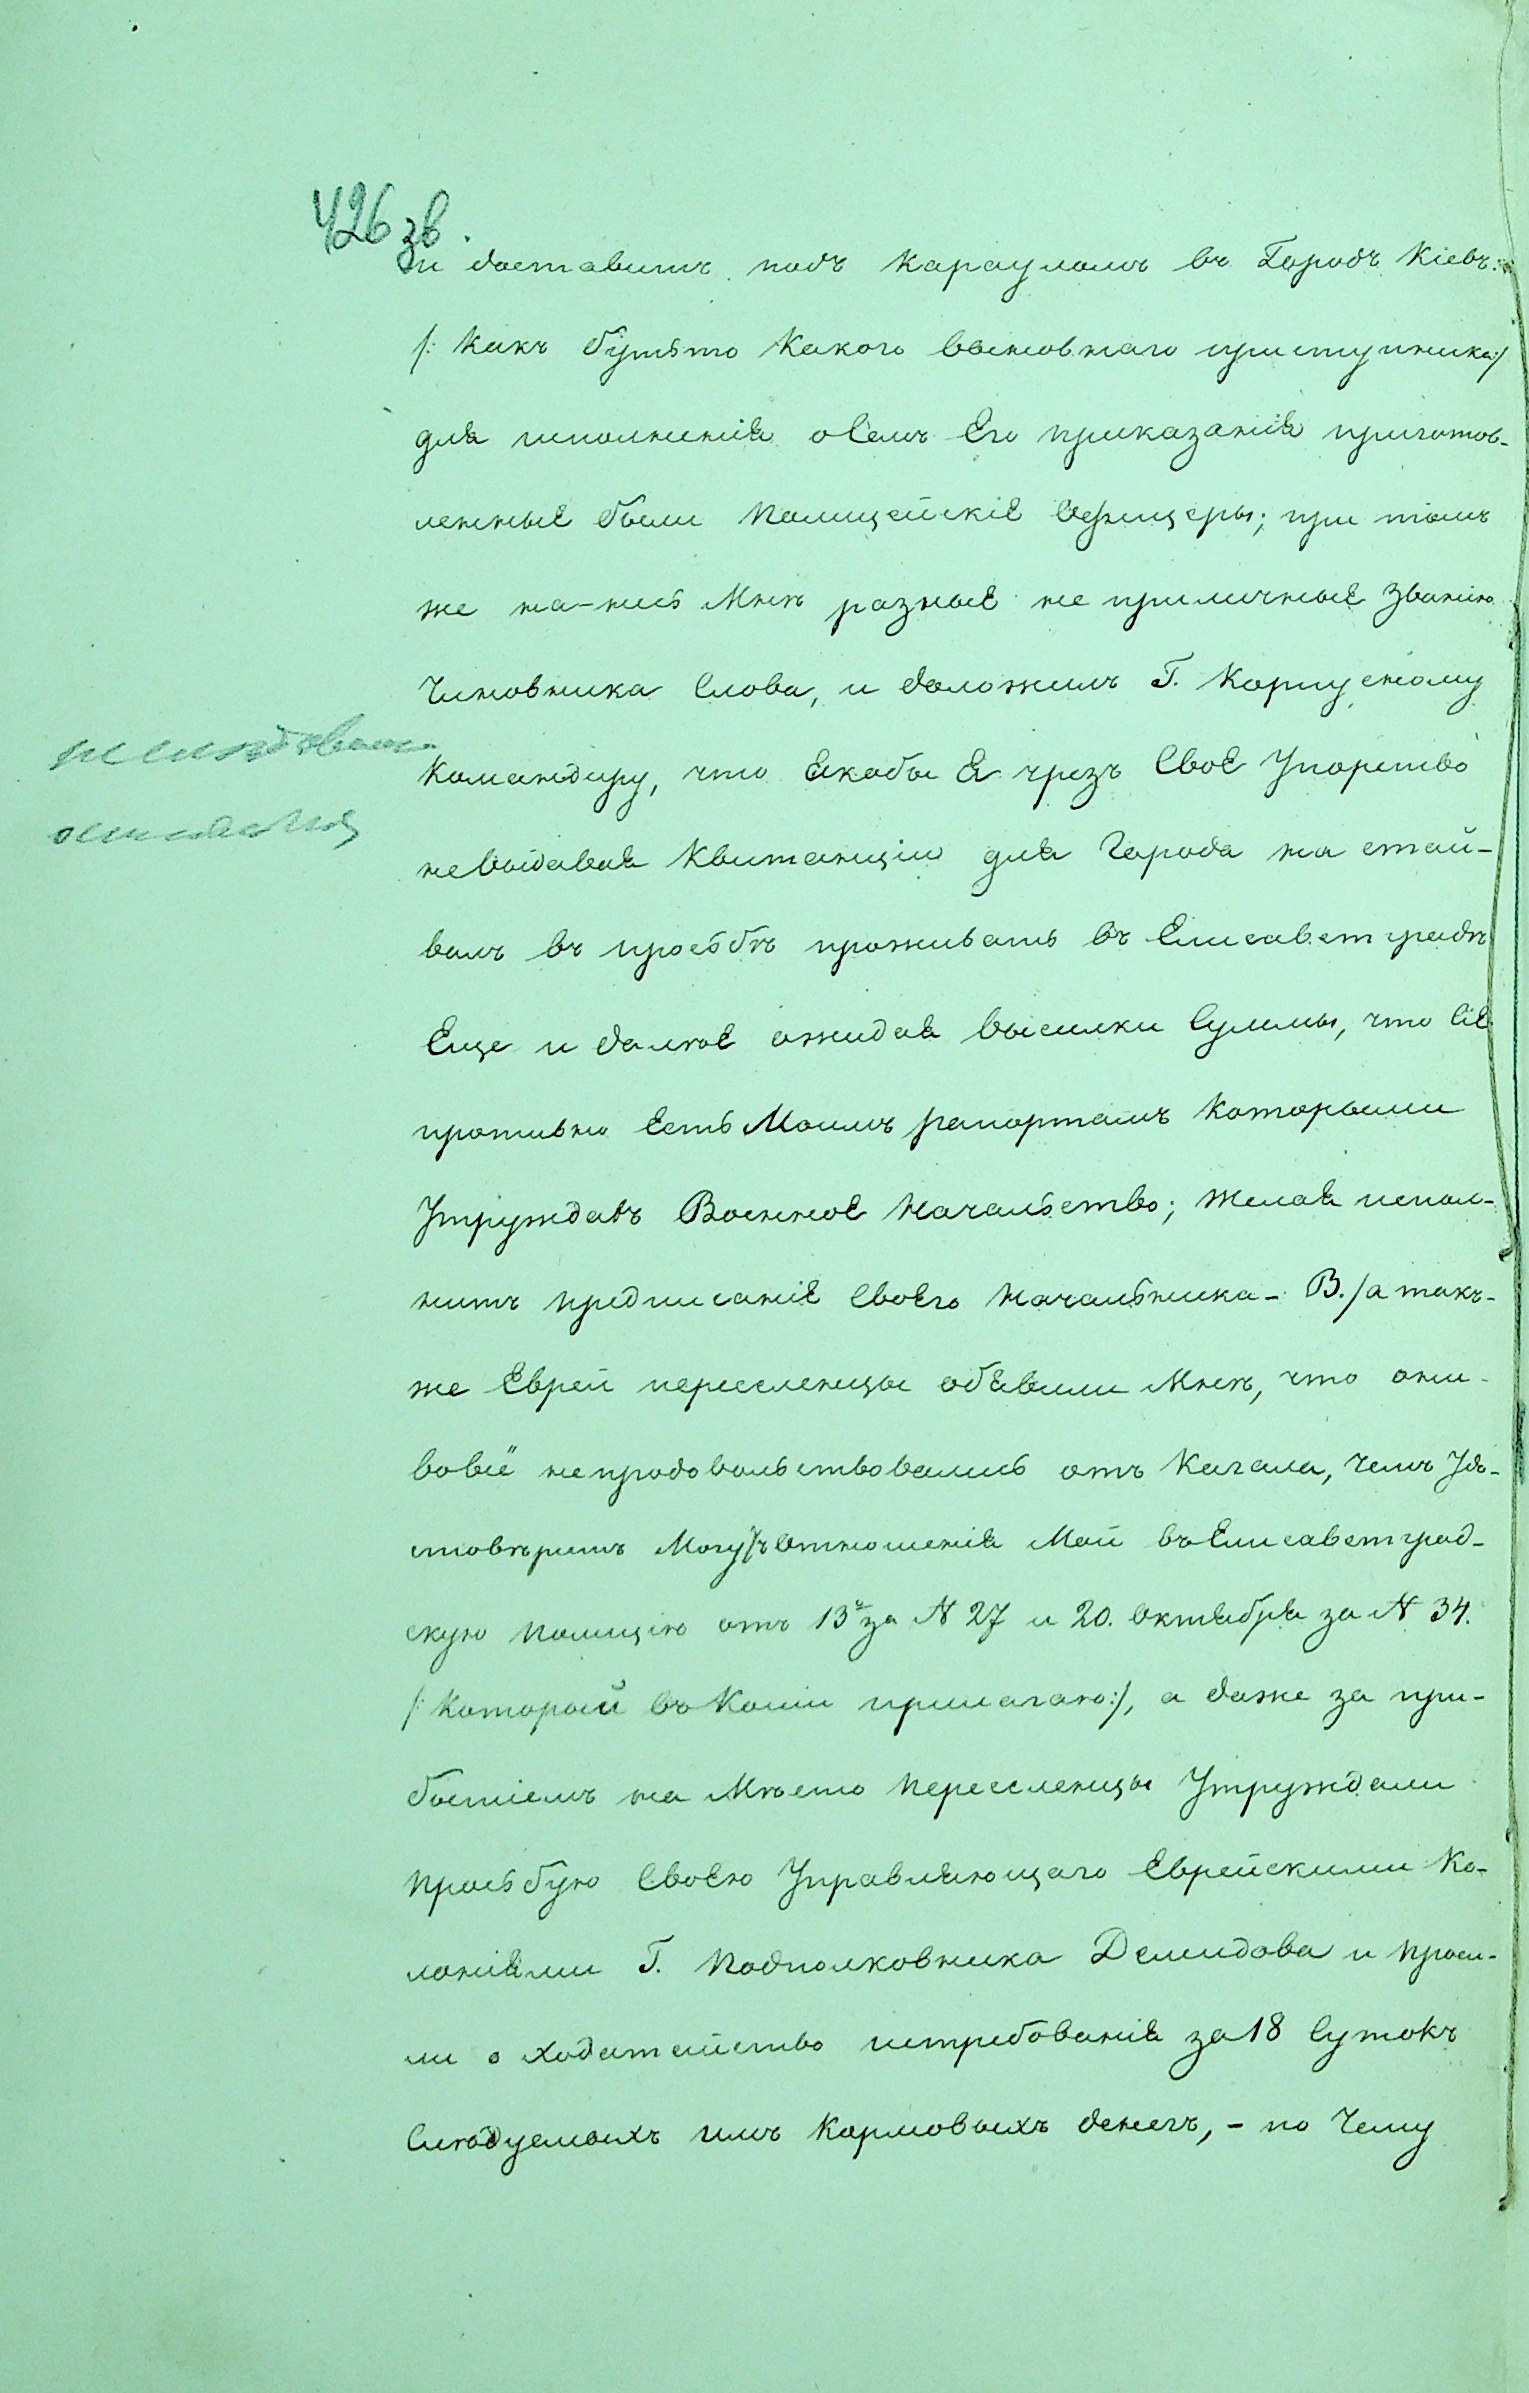 426 зв.
и доставить подъ карауломъ въ Городъ Кіевъ:
/: Какъ бутьто Какого выновнаго приступника:/
для исполненія о семъ Его приказанія приготов-
ленные были Полицейскіе Офицеры; при томъ
же на-несъ Мнѣ разные не приличные Званію
Чиновника Слова, и доложилъ Г. Корпусному
Командиру, что Якобы Я чрезъ Своё Упорство
невыдавая Квитанціи для Города на стай-
валъ въ просьбѣ проживать въ Елисаветградѣ
Еще и далѣе ожидая высилки Суммы, что Сіе
противно Есть Моимъ рапортамъ Которыми
Утруждавъ Военное Начальство; Желая испол-
нить предписаніе Своего Начальника- В. /а такъ-
же Евреи переселенцы объявили Мнѣ, что они-
вовсё непродовольствовались отъ Кагала, Чемъ Удо-
стовѣрить Могутъ Отношенія Мои въ Елисаветград-
скую Полицію отъ 13го за № 27 и 20. Октября за № 34.
/: Которой въ Копіи прилагаю:/, а даже за при-
бытіемъ на Мѣсто Переселенцы Утруждали
Просьбую Своею Управляющаго Еврейскими Ко-
лоніями Г. Подполковника Демидова и проси-
ли о ходатайство истребованія за 18 Сутокъ
Слѣдуемыхъ имъ Кормовыхъ денегъ, - по Чему